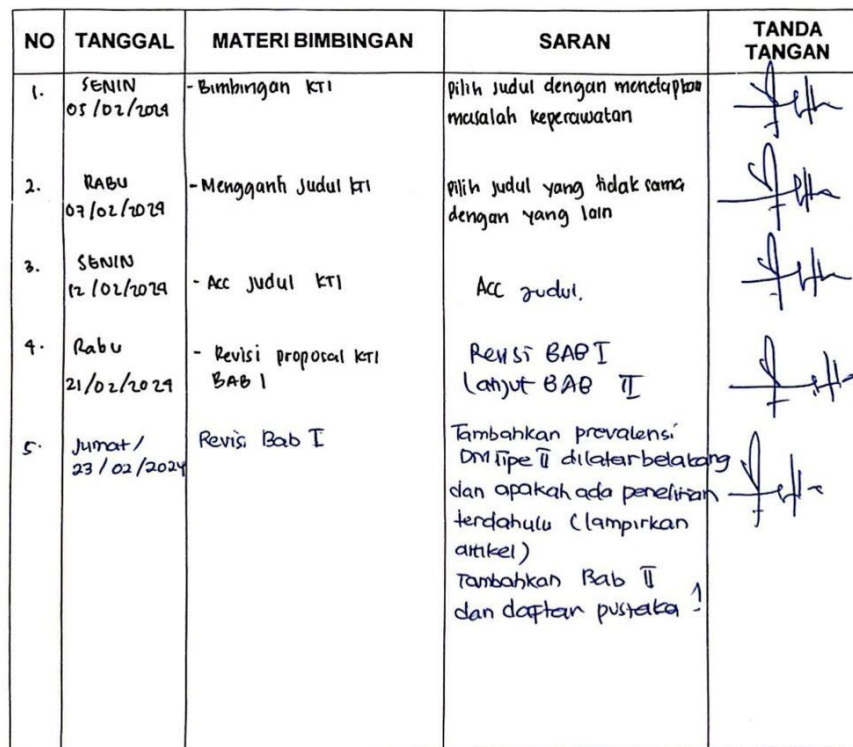 NO TANGGAL MATERI BIMBINGAN SARAN TANDA TANGAN
1. SENIN 05/02/2024
- Bimbingan KTI
pilih judul dengan menetapkan
masalah keperawatan
2. RABU 07/02/2024
- Mengganti Judul KTI
pilih judul yang tidak sama
dengan yang lain
3. SENIN 12/02/2024
- Acc Judul KTI
Acc Judul.
4. Rabu 21/02/2024
- Revisi proposal KTI
BAB 1
Revisi BAB I
Lanjut BAB II
5. Jumat/ 23/02/2024
Revisi Bab I
Tambahkan prevalensi
DM Tipe II dilatarbelakang
dan apakah ada penelitian
terdahulu (lampirkan
artikel)
Tambahkan Bab II
dan daftar pustaka !